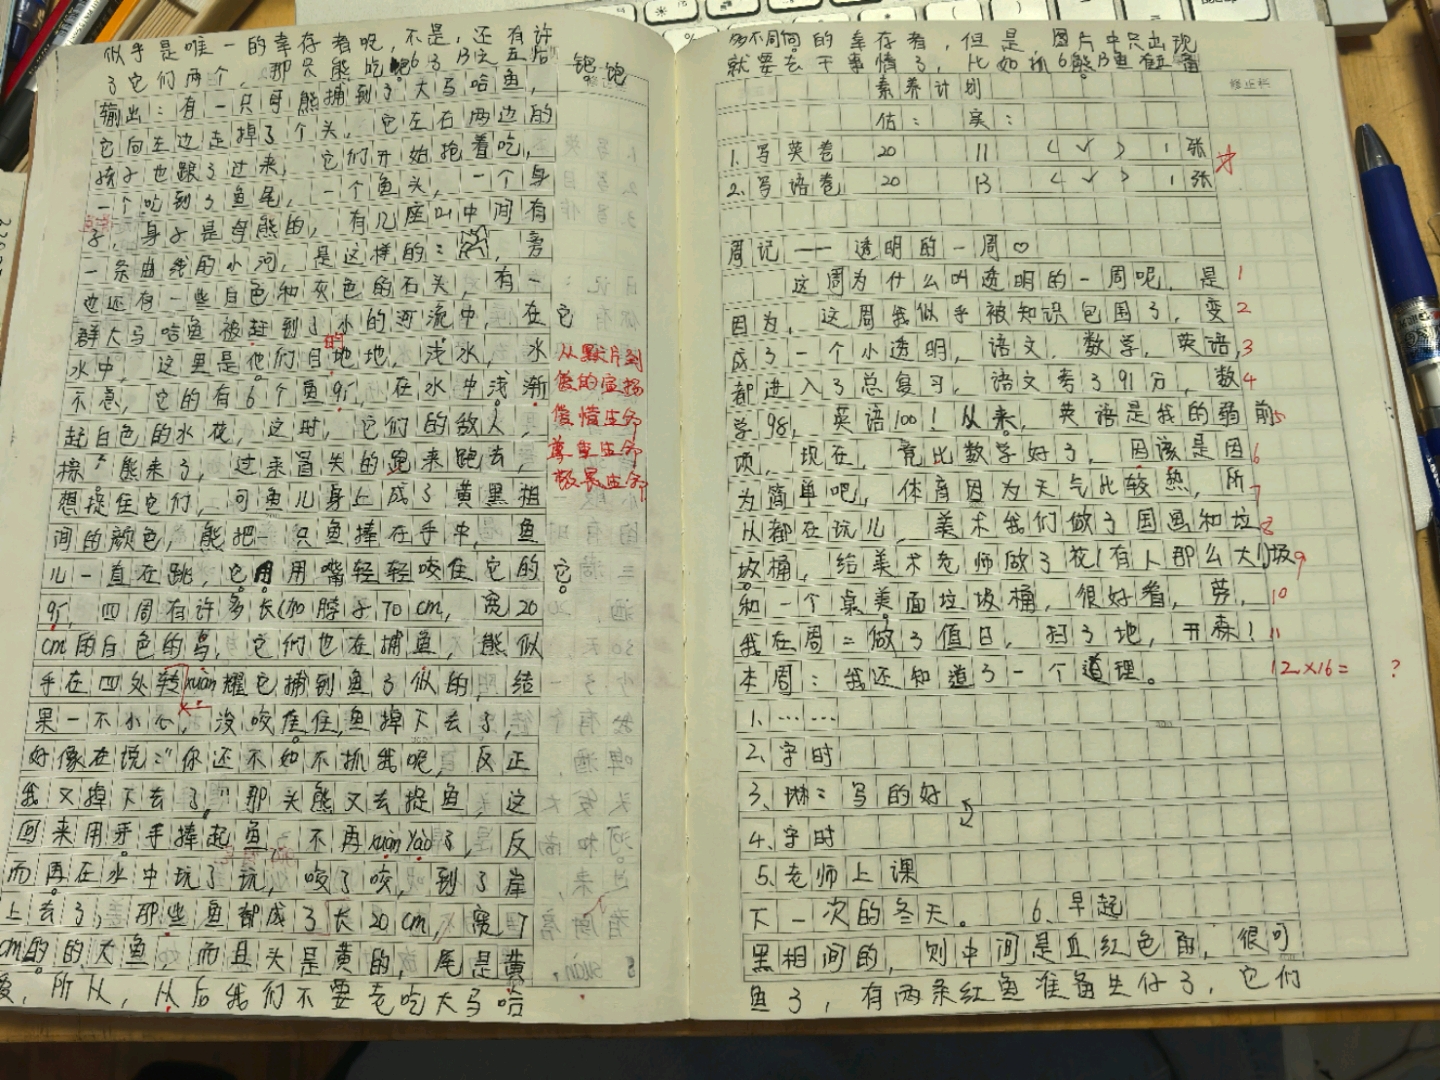 似乎是唯一的幸存者呢,不是,还有许
了它们两个,那只熊吃
饱饱
输出:有一只母熊捕到了大马哈鱼,
它向左边走掉了个头,它左右两边的
孩子也跟了过来,它们开始抢着吃,
一个吃到了鱼尾,一个鱼头,一个身
子,身子是母熊的,有几座山中间有
一条曲线的小河,是这样的:,旁
也还有一些白色和灰色的石头,有一
群大马哈鱼被赶到了水的河流中,在它
水中,这里是他们目的地地,浅水,水
不急,它的有6个鱼鳍,在水中浅渐
赶白色的水花,这时,它们的敌人,
棕熊来了,过来冒失的跑来跑去,
想捉住它们,可鱼儿身上成了黄黑相
间的颜色,熊把一只鱼捧在手中,鱼
儿一直在跳,它用嘴轻轻咬住它的
四周有许多长(加脖子70cm,宽20
cm的白色的鸟,它们也在捕鱼,熊似
乎在四处转xuàn耀它捕到鱼了似的,结
果一不小心,没咬住,鱼掉下去了,
好像在说:"你还不如不抓我呢,反正
我又掉下去了,"那头熊又去捉鱼,这
回来用牙手捧起鱼,不再xuàn yào了,反
而再在水中玩了玩,咬了咬,到了岸
上去了,那些鱼都成了长20cm,宽7
cm的的大鱼,而且头是黄的,尾是黄
爱,所以,以后我们不要老吃大马哈
从默片到
傲的宣扬
价惜生命
尊重生命
敬畏生命
多不同的幸存者,但是,图片中只出现
就要去干事情了,比如抓
素养计划
估: 实:
1.写英卷 20 11 1张
2.写语卷 20 13 1张
周记——透明的一周♡
这周为什么叫透明的一周呢,是 1
因为,这周我似乎被知识包围了,变 2
成了一个小透明,语文,数学,英语,3
都进入了总复习,语文考了91分,数 4
学98,英语100!从来,英语是我的弱前 5
项,现在,竟比数学好了,因该是因 6
为简单吧,体育因为天气比较热,所 7
从都在玩儿,美术我们做了国画和垃 8
圾桶,给美术老师做了花(有人那么大)圾 9
和一个桌面垃圾桶,很好看,劳, 10
我在周二做了值日,扫了地,开森! 11
本周:我还知道了一个道理。 12×16= ?
1.……
2.字时
3.琳:写的好
4.字时
5.老师上课
下一次的冬天。 6.早起
黑相间的,则中间是血红色的,很可
鱼了,有两条红鱼准备生仔了,它们